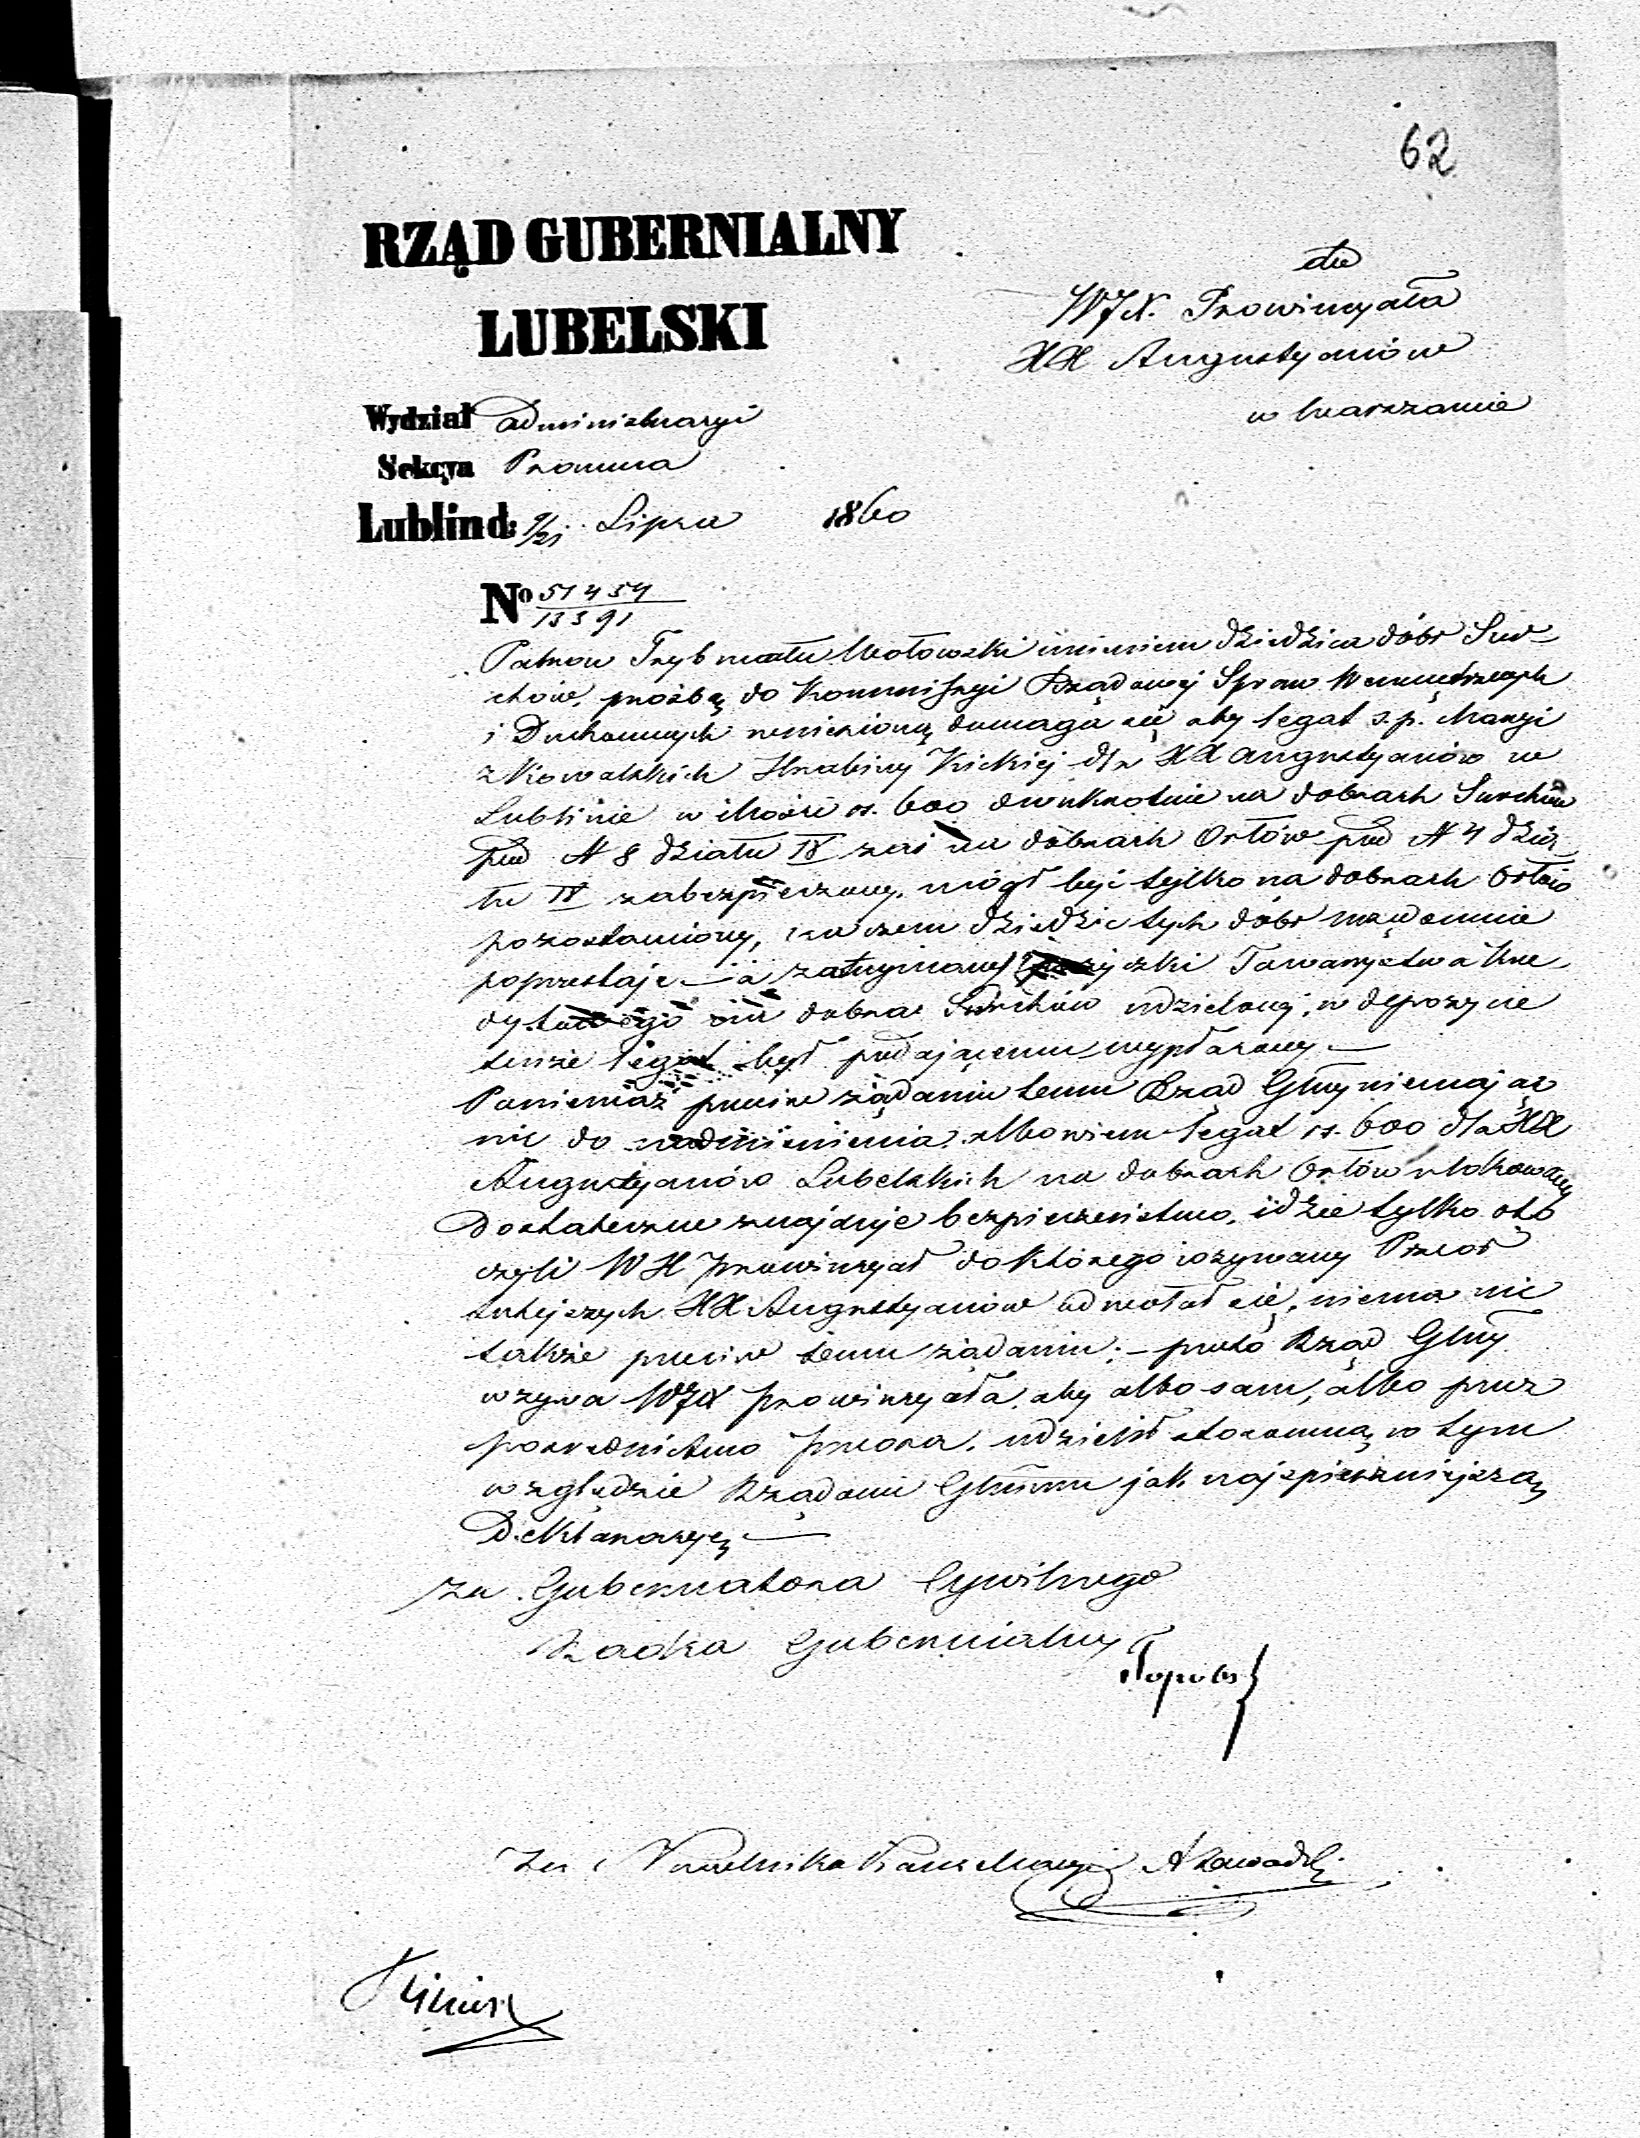 62
RZĄD GUBERNIALNY
LUBELSKI
do
WJX. Prowincyała
XX Augustyanów
w Warszawie
Wydział Administracyi
Sekcya Prawna
Lublin d: 9/21 Lipca 1860
No 51454
13391
Patron Trybunału Wołowski imieniem dziedzica dóbr Sur-
chów, prośbą do Kommissyi Rządowej Spraw Wewnętrznych
i Duchownych wniesioną domaga się aby legat s.p. Maryi
z Kowalskich Hrabiny Kickiej dla XX Augustyanów w
Lublinie w ilości rs. 600 dwukrotnie na dobrach Surchów
pod N 8 działu IV zaś na dobrach Orłów pod N 4 dzia-
łu IV zabezpieczony, mógł być tylko na dobrach Orłów
pozostawiony, na czem dziedzic tych dóbr
poprzestaje — a zatrzymany pożyczki Towarzystwa Kre-
dytowego na dobra Surchów udzielonej, w depozycie
tenże legat był podającemu wypłacony —
Ponieważ przeciw żądaniu temu Rząd Glny niemając
nic do nadmienienia albowiem legat rs. 600 dla XX
Augustyanów Lubelskich na dobrach Orłów ulokowany
Dostateczne znajduje bezpieczeństwo, idzie tylko oto
czyli WX Prowincyał do którego wzywany Przeor
tutejszych XX Augustyanów odwołał się, niema nic
także przeciw temu żądaniu; — przeto Rząd Glny
wzywa WJX Prowincyała, aby albo sam, albo przez
pośrednictwo Przeora, udzielił stosowną w tym
względzie Rządowi Glnemu jak najspieszniejszą
Deklaracyę —
za Gubernatora Cywilnego
Radca Gubernialny
Za Naczelnika Kancellaryi AZawadzki